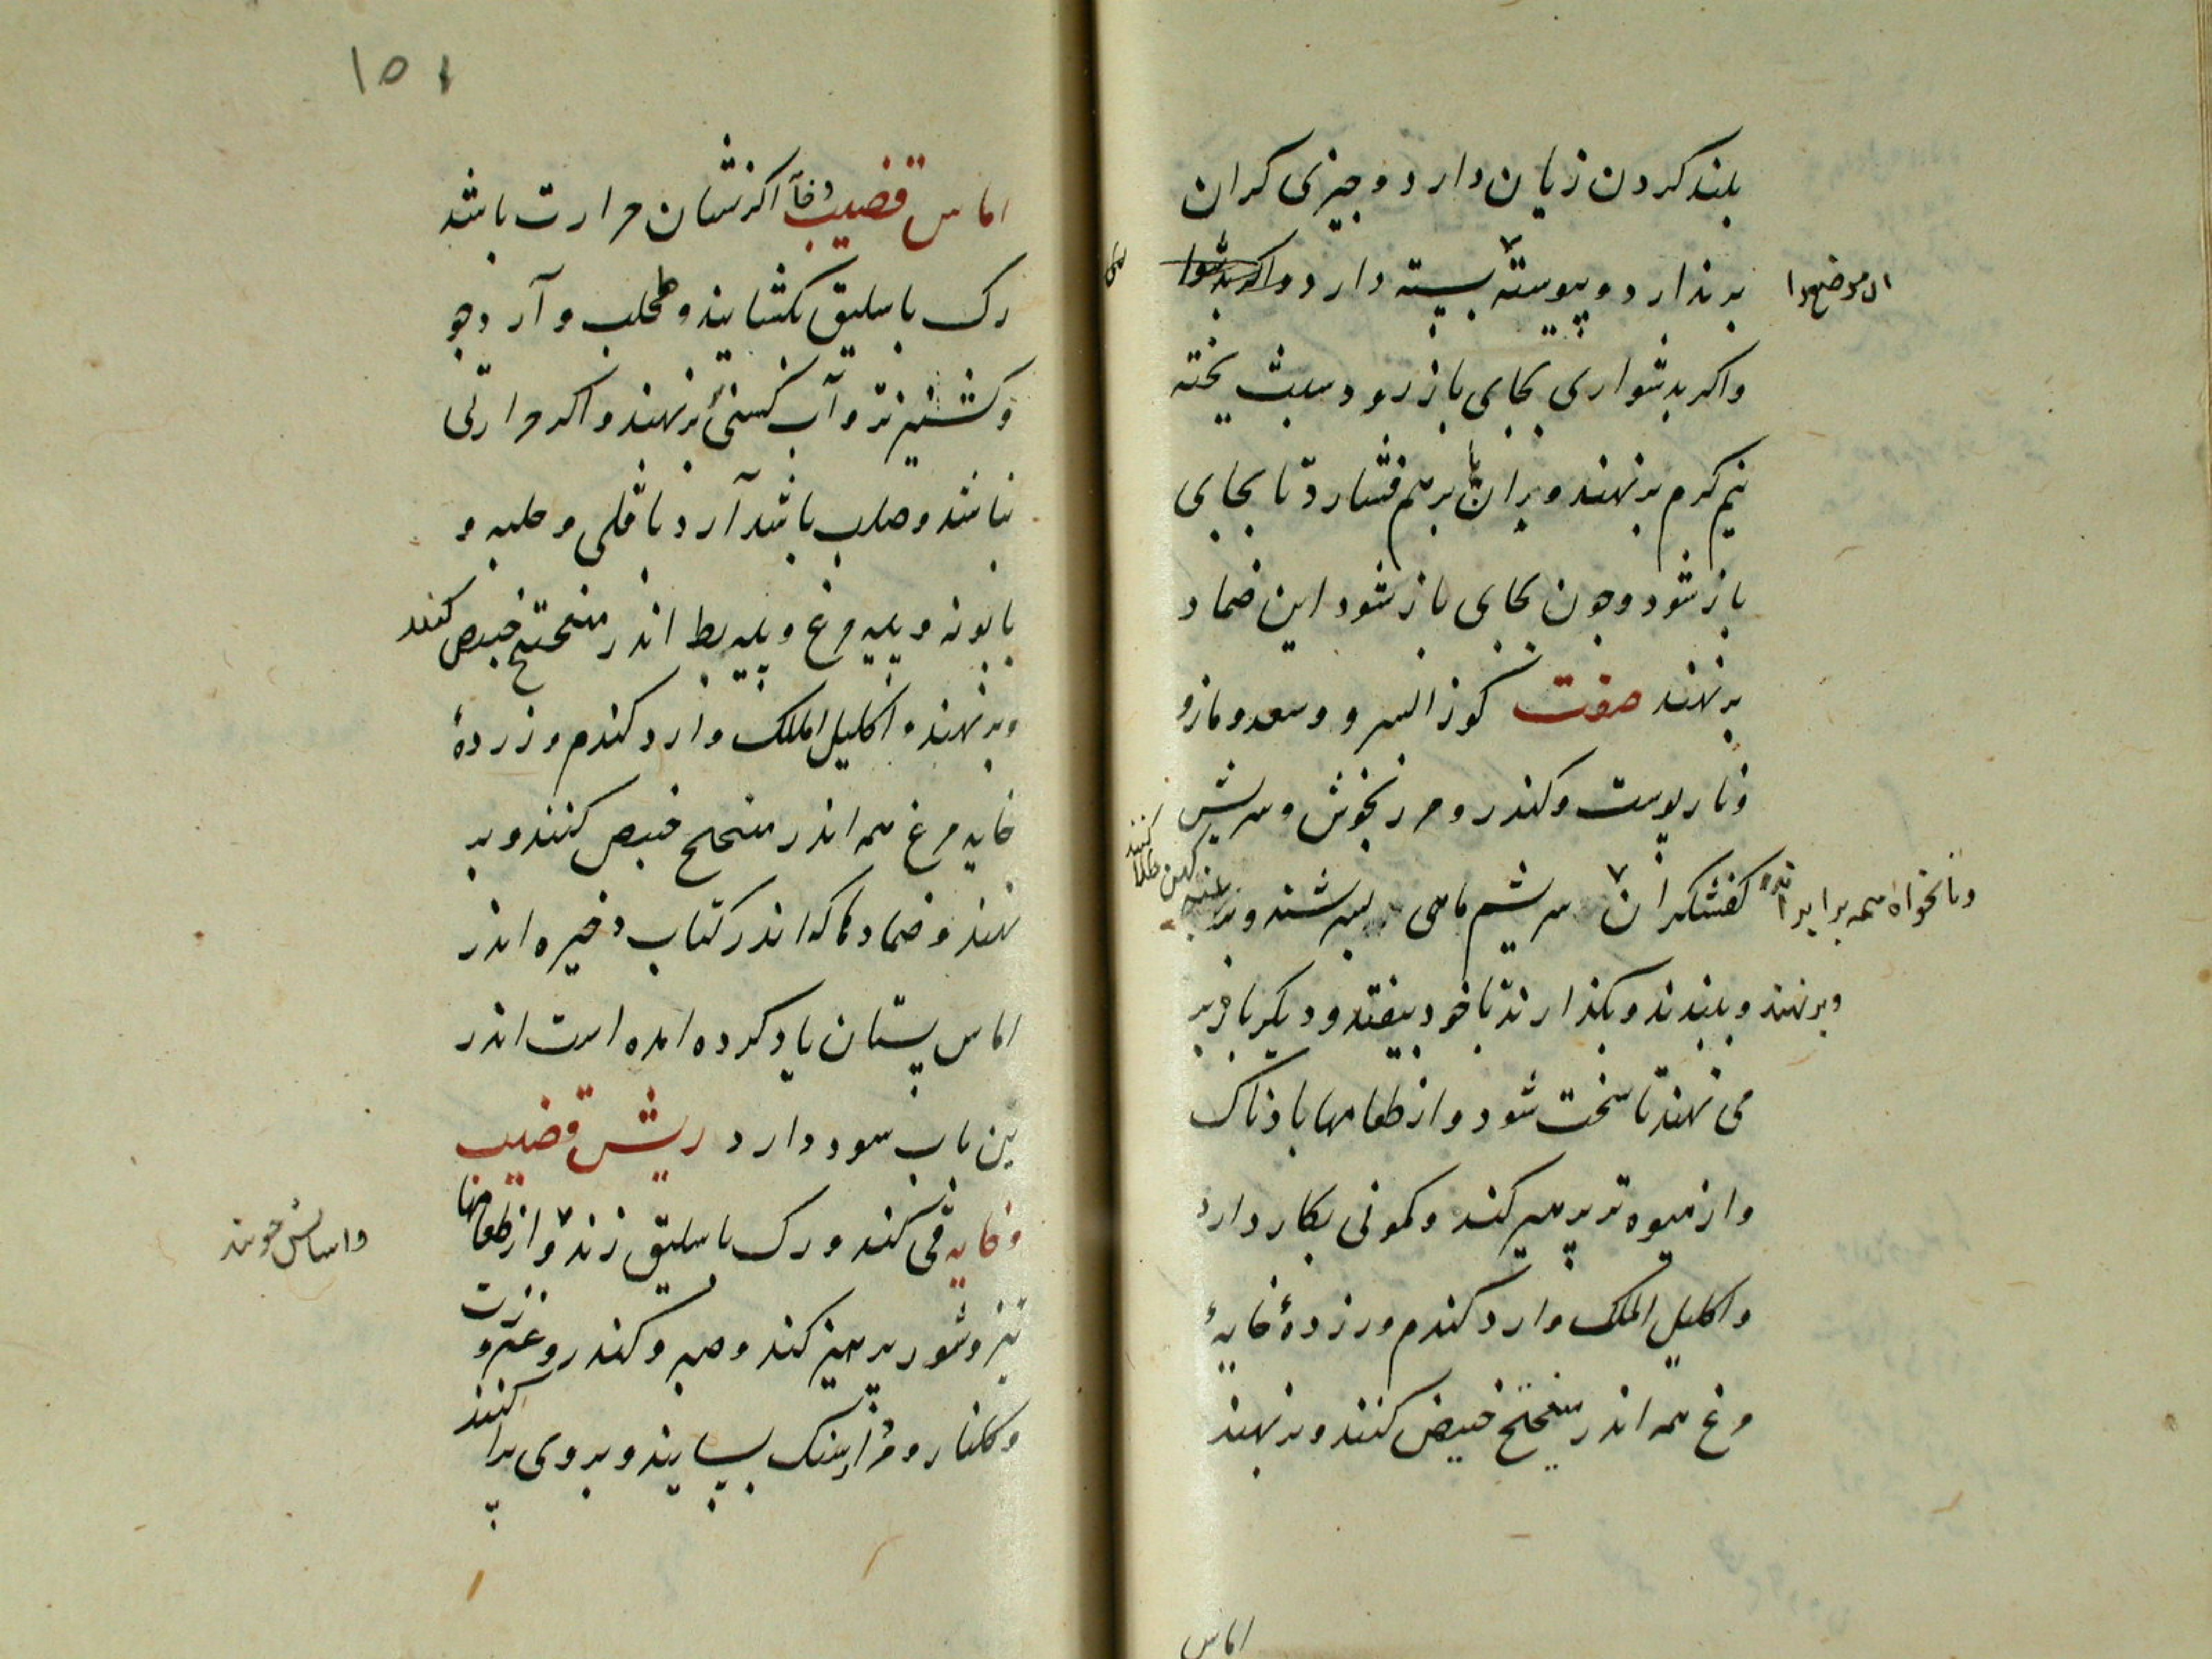 بلند کردن زیان دارد و چیزی کران
برندارد و پیوسته بسته دارد
ان موضع را
واکر بدشواری بجای باز رود سبث پخته
نیم کرم برنهند و بران برهم فشارد تا بجای
باز شود و چون بجای باز شود این ضماد
برنهند صفت کوز السرو و سعد و مازو
و نار پوست و کندر و مرزنجوش و سریش
کفشکران سریشم ماهی بسرشند و بر
و نانخواه همه برابر
کهن طلا کنند
و برنهند و ببندند و بکذارند تا خود بیفتد و دیکر باره بر
می نهند تا سخت شود و از طعامها بادناک
و از میوه تر پرهیز کند و کمونی بکار دارد
و اکلیل الملک و ارد کندم و زردهٔ خایهٔ
مرغ همه اندر میفختج خبیص کنند و برنهند
اماس
۱۵۱
اماس قضیب و خایه اکر نشان حرارت باشد
رک باسلیق بکشایند و طحلب و آرد جو
و کشنیز تر و آب کسنی برنهند و اکر حرارتی
نباشد و صلب باشد آرد باقلی و حلبه و
بابونه و پیه مرغ و پیه بط اندر میفختج خبیص کنند
و برنهند و اکلیل الملک و ارد کندم و زردهٔ
خایه مرغ همه اندر میفختج خبیص کنند و بر
نهند و ضمادها که اندر کتاب ذخیره اندر
اماس پستان یاد کرده امده است اندر
ین باب سود دارد ریش قضیب
و خایه قی کند و رک باسلیق زند و از طعامها
واسایش جویند
تیز و شور پرهیز کند و صبر و کندر و عنزروت
و کلنار و مرداسنک بسایند و بروی پراکنند